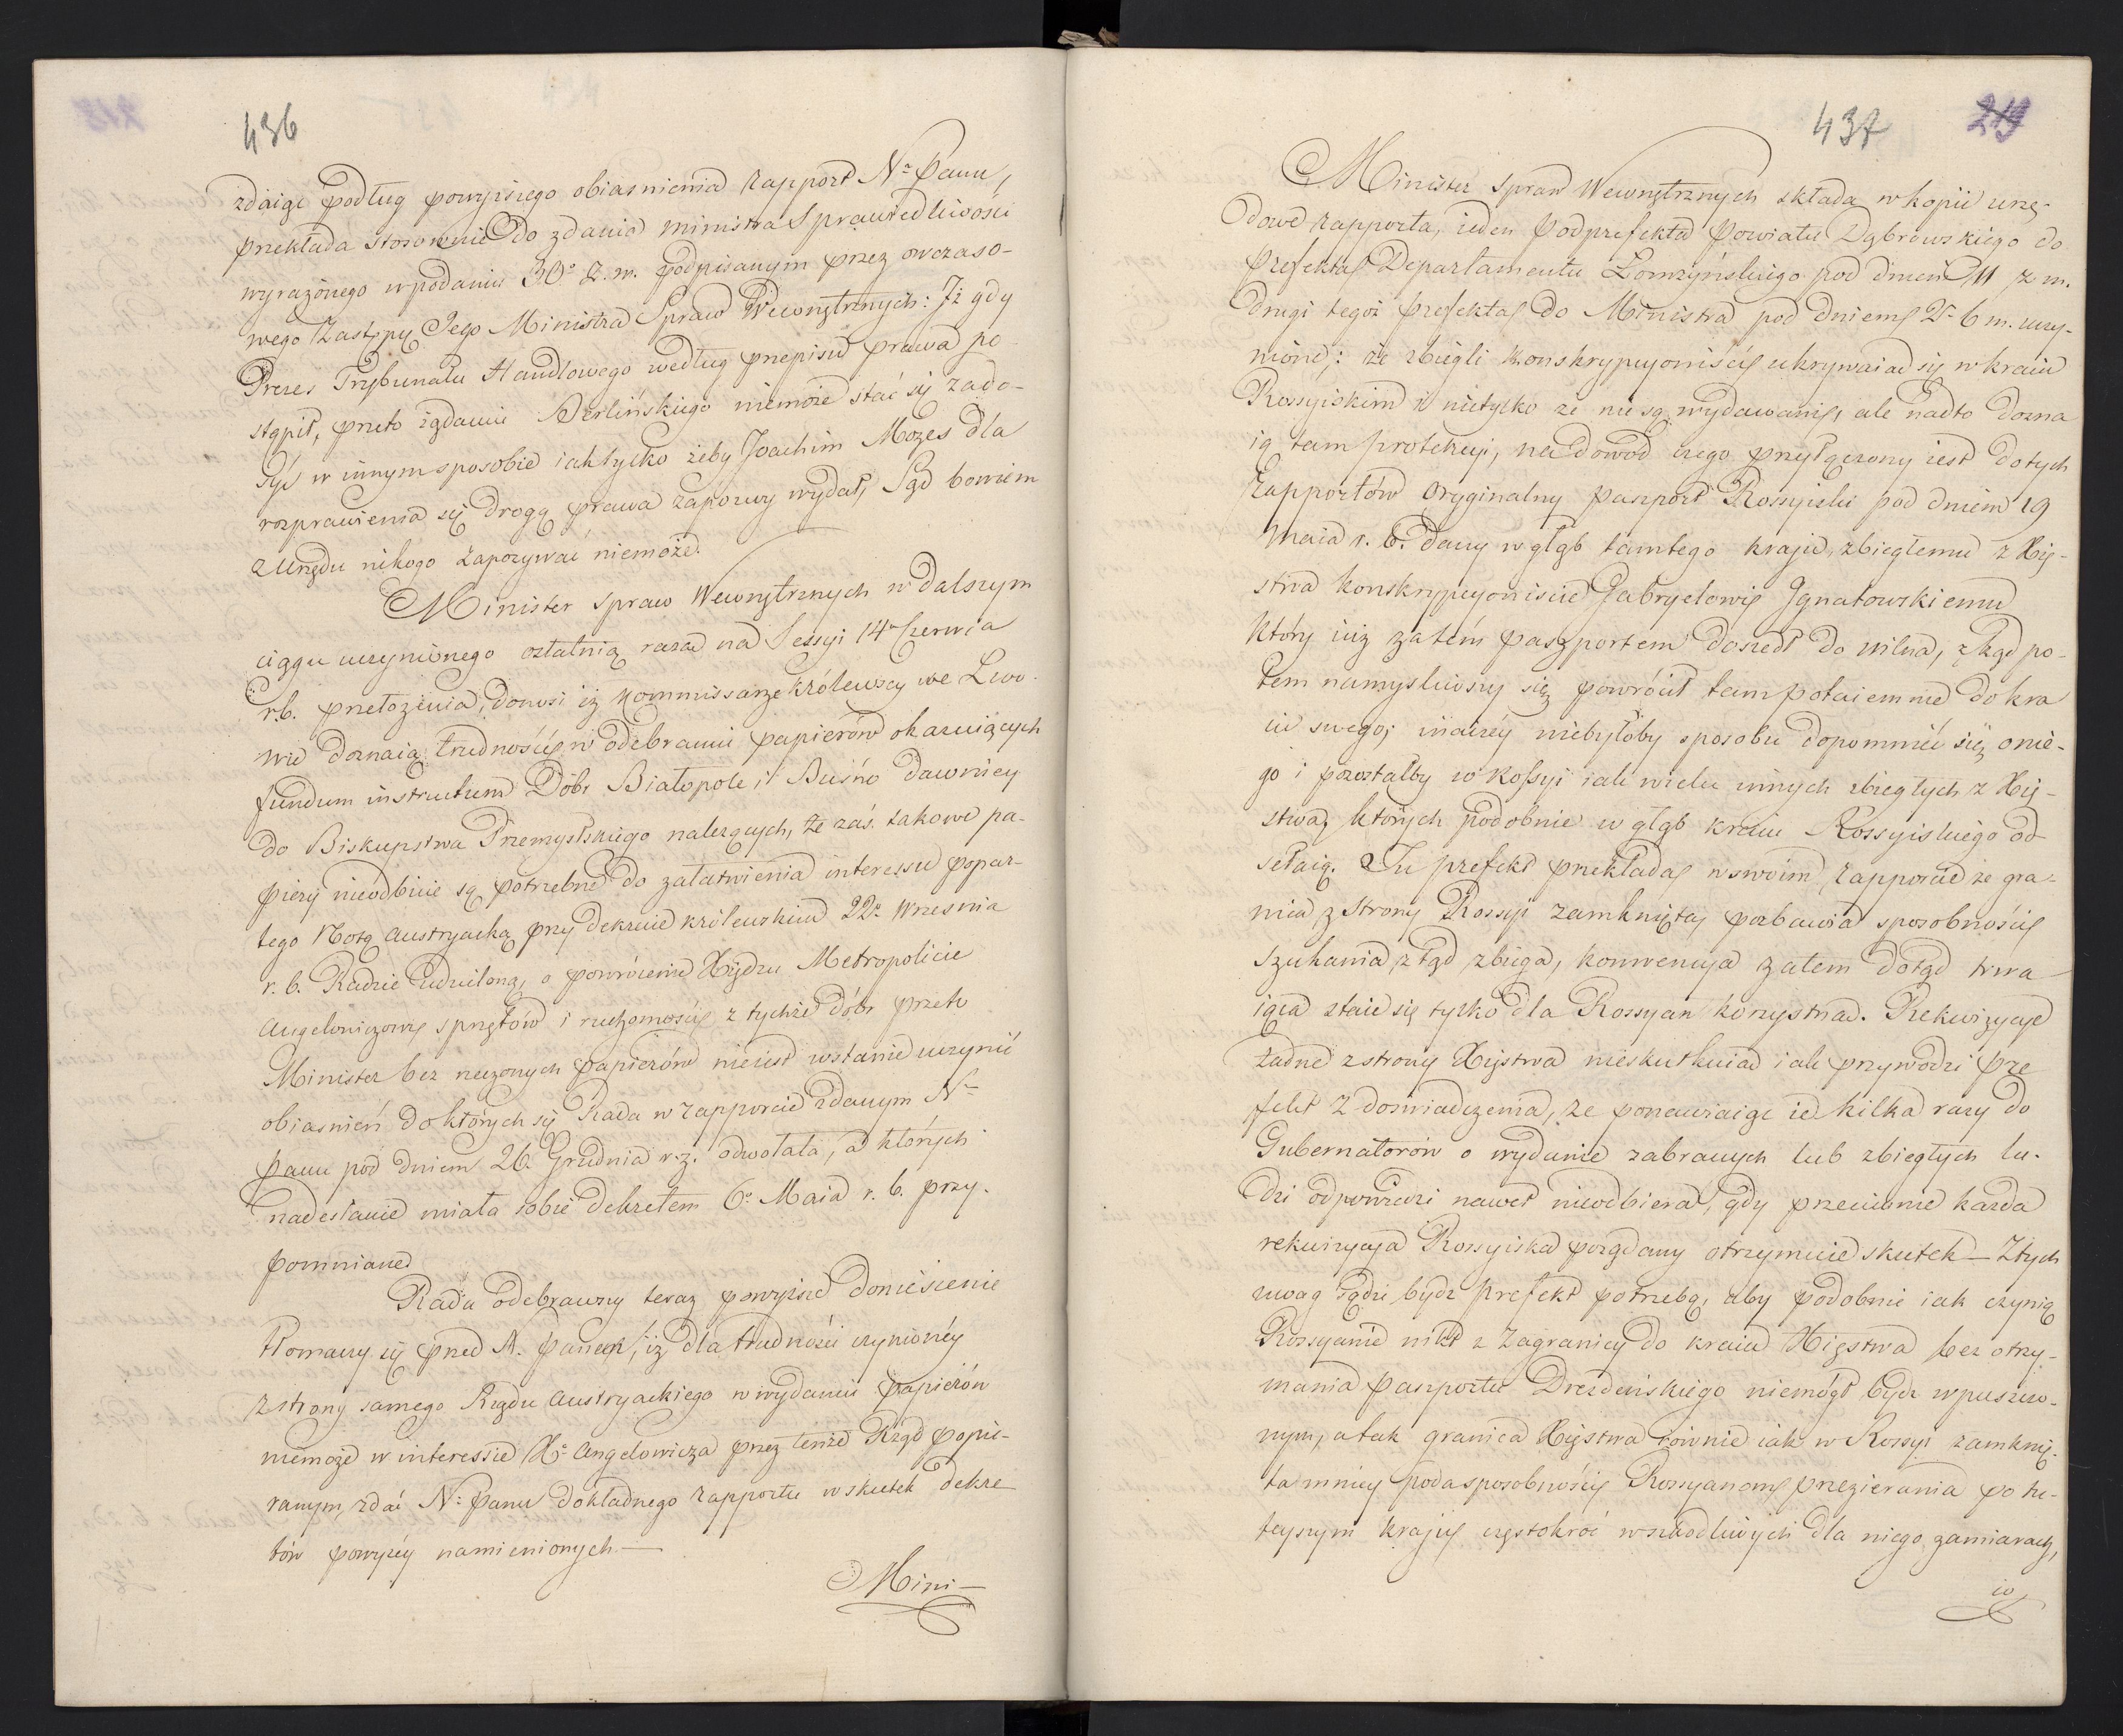 436
zdaiąc podług powyższego obiasnienia rapport Nu Panu,
przekłada stosownie do zdania ministra Sprawiedliwości
wyrażonego w podaniu 30o z. m. podpisanym przez owczaso-
wego Zastępcę Jego Ministra Spraw Wewnętrznych: Iż gdy
Prezes Trybunału Handlowego według przepisu prawa po-
stąpił, przeto żądaniu Berlińskiego niemoże stać się zado-
syć w innym sposobie iak tylko żeby Joachim Mozes dla
rozprawienia się drogą prawa zapozwy wydał, Sąd bowiem
z Urzędu nikogo zapozywać niemoże.
Minister Spraw Wewnętrznych w dalszym
ciągu uczynionego ostatnią razą na Sessyi 14 Czerwca
r. b. przełożenia, donosi iż Kommissarze Królewscy we Lwo-
wie doznaią trudności w odebraniu papierów okazuiących
fundum instructum Dóbr Białopole i Buśno dawniey
do Biskupstwa Przemyslskiego nalezących, że zaś takowe pa-
piery nieodbicie są potrzebne do załatwienia interessu popar-
tego Notą Austryacką przy dekrecie królewskim 22o Wrzesnia
r. b. Radzie udzieloną, o powrócenie Xiędzu Metropolicie
Angelowiczowi sprzętów i ruchomości z tychże dóbr przeto
Minister bez rzeczonych papierów nieiest wstanie uczynić
obiasnień do których się Rada w rapporcie zdanym Nu
Panu pod dniem 26. Grudnia r. z. odwołała, a których
nadesłanie miała sobie dekretem 6o Maia r. b. przy-
pomniane
Rada odebrawszy teraz powyższe doniesienie
tłomaczy się przed N. Panem, iż dla trudności czynionéy
z strony samego Rządu Austryackiego w wydaniu papierów
niemoże w interessie Xa Angelowicza przez tenże Rząd popie-
ranym, zdać Nu Panu dokładnego rapportu w skutek dekre-
tów powyżéy namienionych —
Mini—
437
219
Minister Spraw Wewnętrznych składa w kopii urzę-
dowe rapporta, ieden Podprefekta Powiatu Dąbrowskiego do
Prefekta Departamentu Łomżyńskiego pod dniem 11 z. m.
drugi tegoż Prefekta do Ministra pod dniem 2o b. m. uczy-
nione; że zbiegli konskrypcyoniści ukrywaia się w kraiu
Rossyiskim i nietylko że nie są wydawani, ale nadto dozna
ią tam protekcyi, na dowod czego przyłączony iest do tych
Rapportów oryginalny paszport Rossyiski pod dniem 19
Maia r. b. dany w głąb tamtego kraju, zbiegłemu z Xię-
stwa konskrypcyoniście Gabryelowi Ignatowskiemu
który iuż zatém paszportem doszedł do Wilna, zkąd po-
tem namysliwszy się powrócił tam potaiemnie do kra
iu swego; inaczéy niebyłoby sposobu dopomnieć się onie-
go i pozostałby w Rossyi iak wielu innych zbiegłych z Xię-
stwa, których podobnie w głąb kraiu Rossyiskiego od-
sełaią. Tu prefekt przekłada w swoim rapporcie że gra-
nica z strony Rossyi zamknięta pozbawia sposobności
szukania ztąd zbiega, konwencya zatem dotąd trwa
iąca staie się tylko dla Rossyan korzystna. Rekwizycye
żadne z strony Xięstwa nieskutkuia iak przywodzi Pre
fekt z doswiadczenia, że ponawiaiąc ie kilka razy do
Gubernatorów o wydanie zabranych lub zbiegłych lu-
dzi odpowiedzi nawet nieodbiera, gdy przeciwnie każda
rekwizycya Rossyiska pożądany otrzymuie skutek — Z tych
uwag sądzi bydz Prefekt potrzebą, aby podobnie iak czynią
Rossyanie nikt z zagranicy do kraiu Xięstwa bez otrzy-
mania paszportu Drezdeńskiego niemógł bydz wpuszczo-
nym, a tak granica Xięstwa równie iak w Rossyi zamknię-
ta mniey poda sposobności Rossyanom przezierania po tu-
teyszym kraju częstokroć w szkodliwych dla niego zamiarach,
io